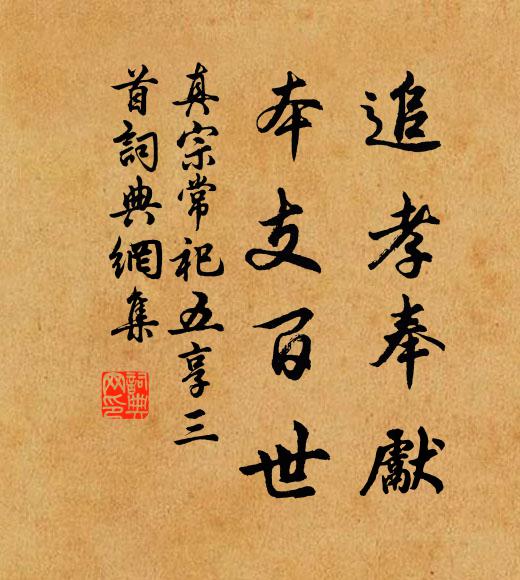 追孝奉獻
本支百世
真宗常祀五享三
首詞典網集
詞典
网印